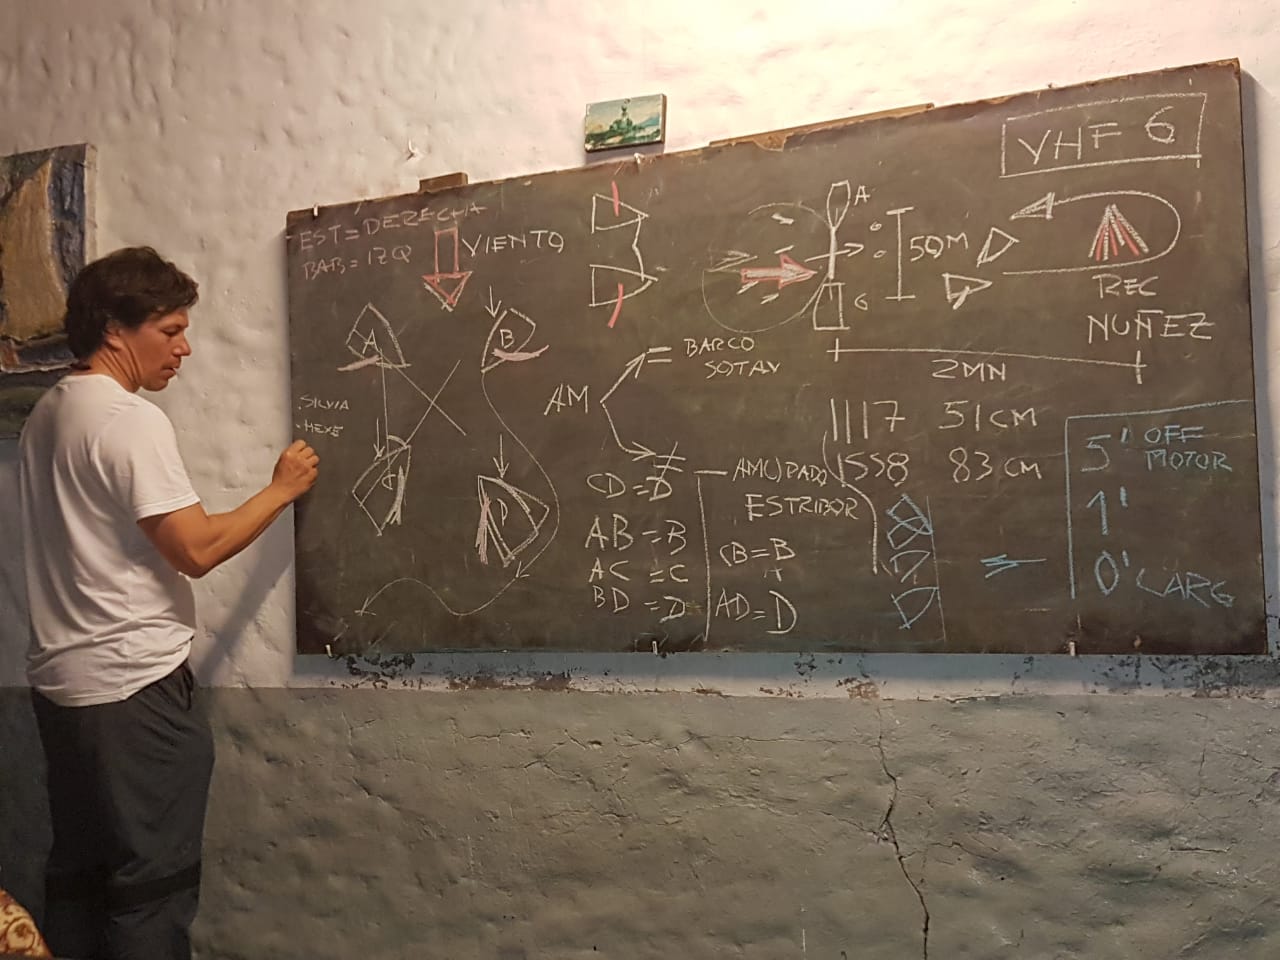 VHF 6
EST = DERECHA
BAB = IZQ
VIENTO
A
B
C
D
.SILVIA
A
G
50M
REC
NUÑEZ
2MN
AM
= BARCO
SOTAV
≠
AMURADO
ESTRIBOR
CD = D
AB = B
AC = C
BD = D
CB = B
AD = D
1117 51CM
1558 83CM
5' OFF
MOTOR
1'
0' LARG